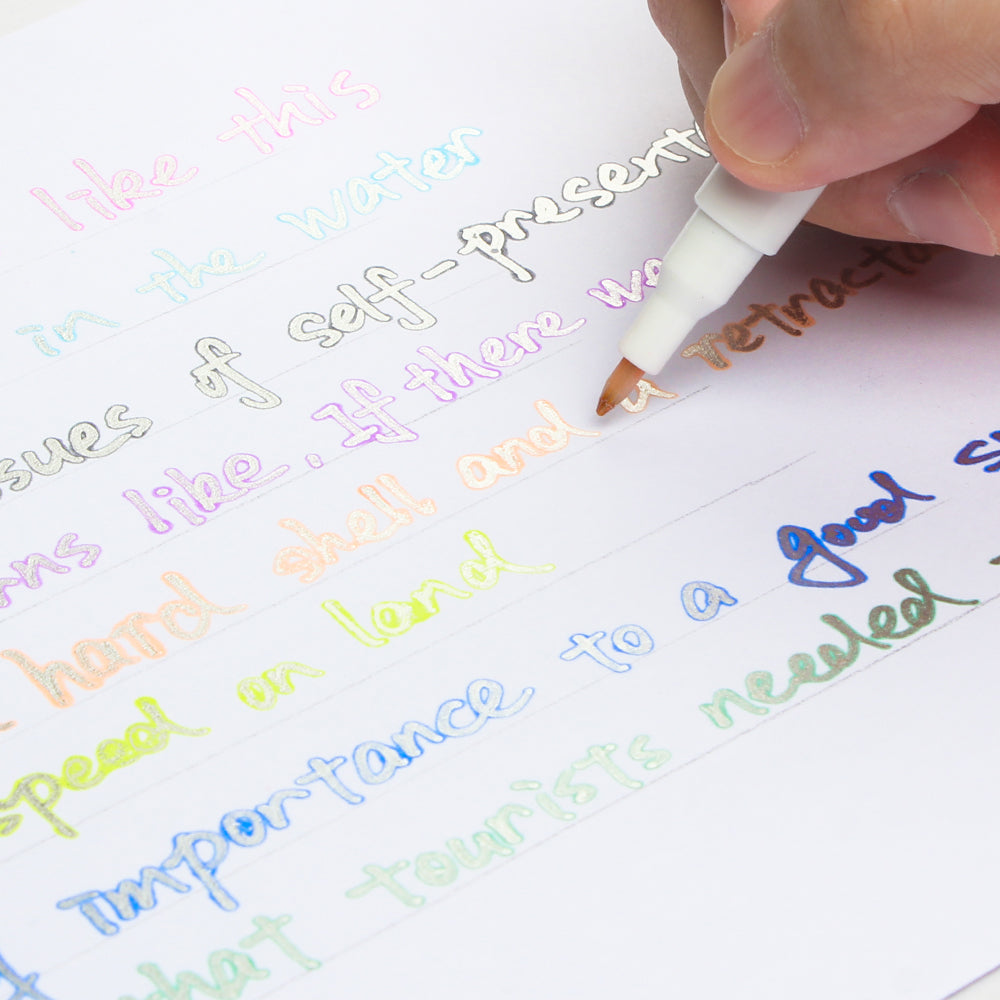 like this
in the water
ssues of self-present
rns like, If there wa
hard shell and a retracta
speed on land
importance to a good su
what tourists needed